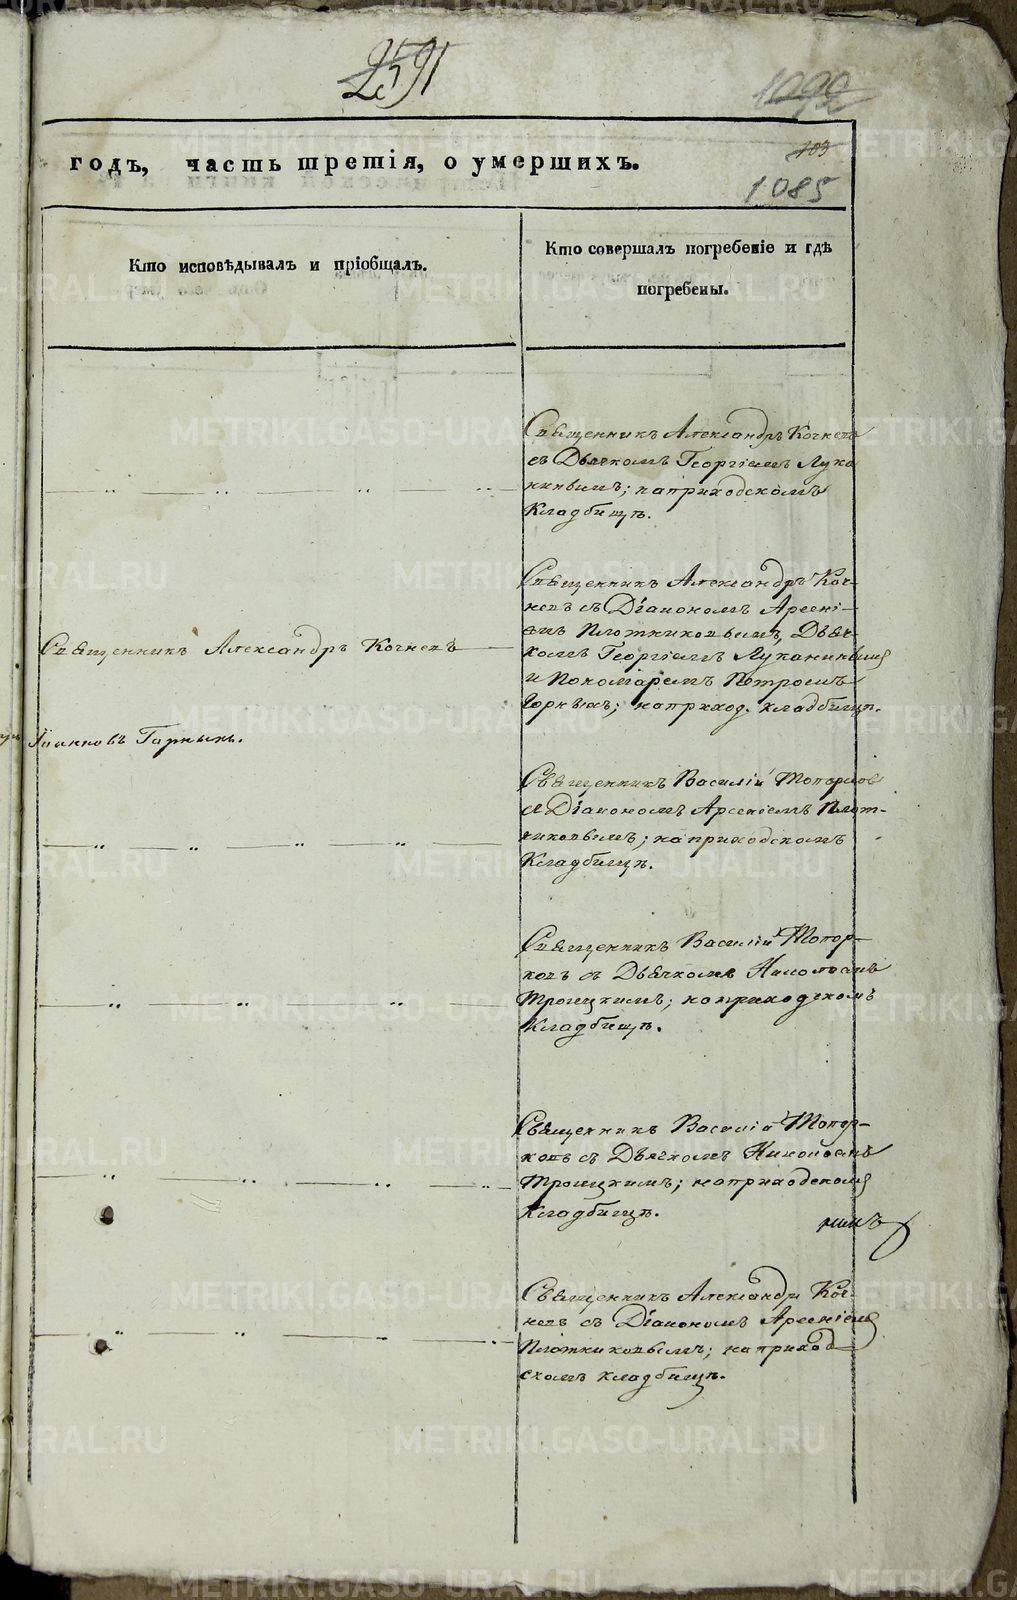 2591
1099
годъ, часть третія, о умершихъ.
103
1085
Кто исповѣдывалъ и пріобщалъ.
Кто совершалъ погребеніе и гдѣ
погребены.
Священникъ Александръ Кочневъ
съ Дьячкомъ Георгіемъ Лука
нинымъ; на приходскомъ
кладбищѣ.
Священникъ Александръ Коч-
невъ съ Діакономъ Арсені-
емъ Плотниковымъ, Дьяч-
комъ Георгіемъ Луканинымъ
и Пономаремъ Петромъ
Горныхъ; на приход. кладбищѣ.
Священникъ Александръ Кочневъ
Іоанновъ
Священникъ Василій Топорковъ
съ Діакономъ Арсеніемъ Плот-
никовымъ; на приходскомъ
Кладбищѣ.
Священникъ Василій Топор-
ковъ съ Дьячкомъ Николаемъ
Троицкимъ; на приходскомъ
Кладбищѣ.
Священникъ Василій Топор-
ковъ съ Дьячкомъ Николаемъ
Троицкимъ; на приходскомъ
кладбищѣ.
Священникъ Александръ Коч-
невъ съ Діакономъ Арсеніемъ
Плотниковымъ; на приход
скомъ кладбищѣ.
METRIKI.GASO-URAL.RU